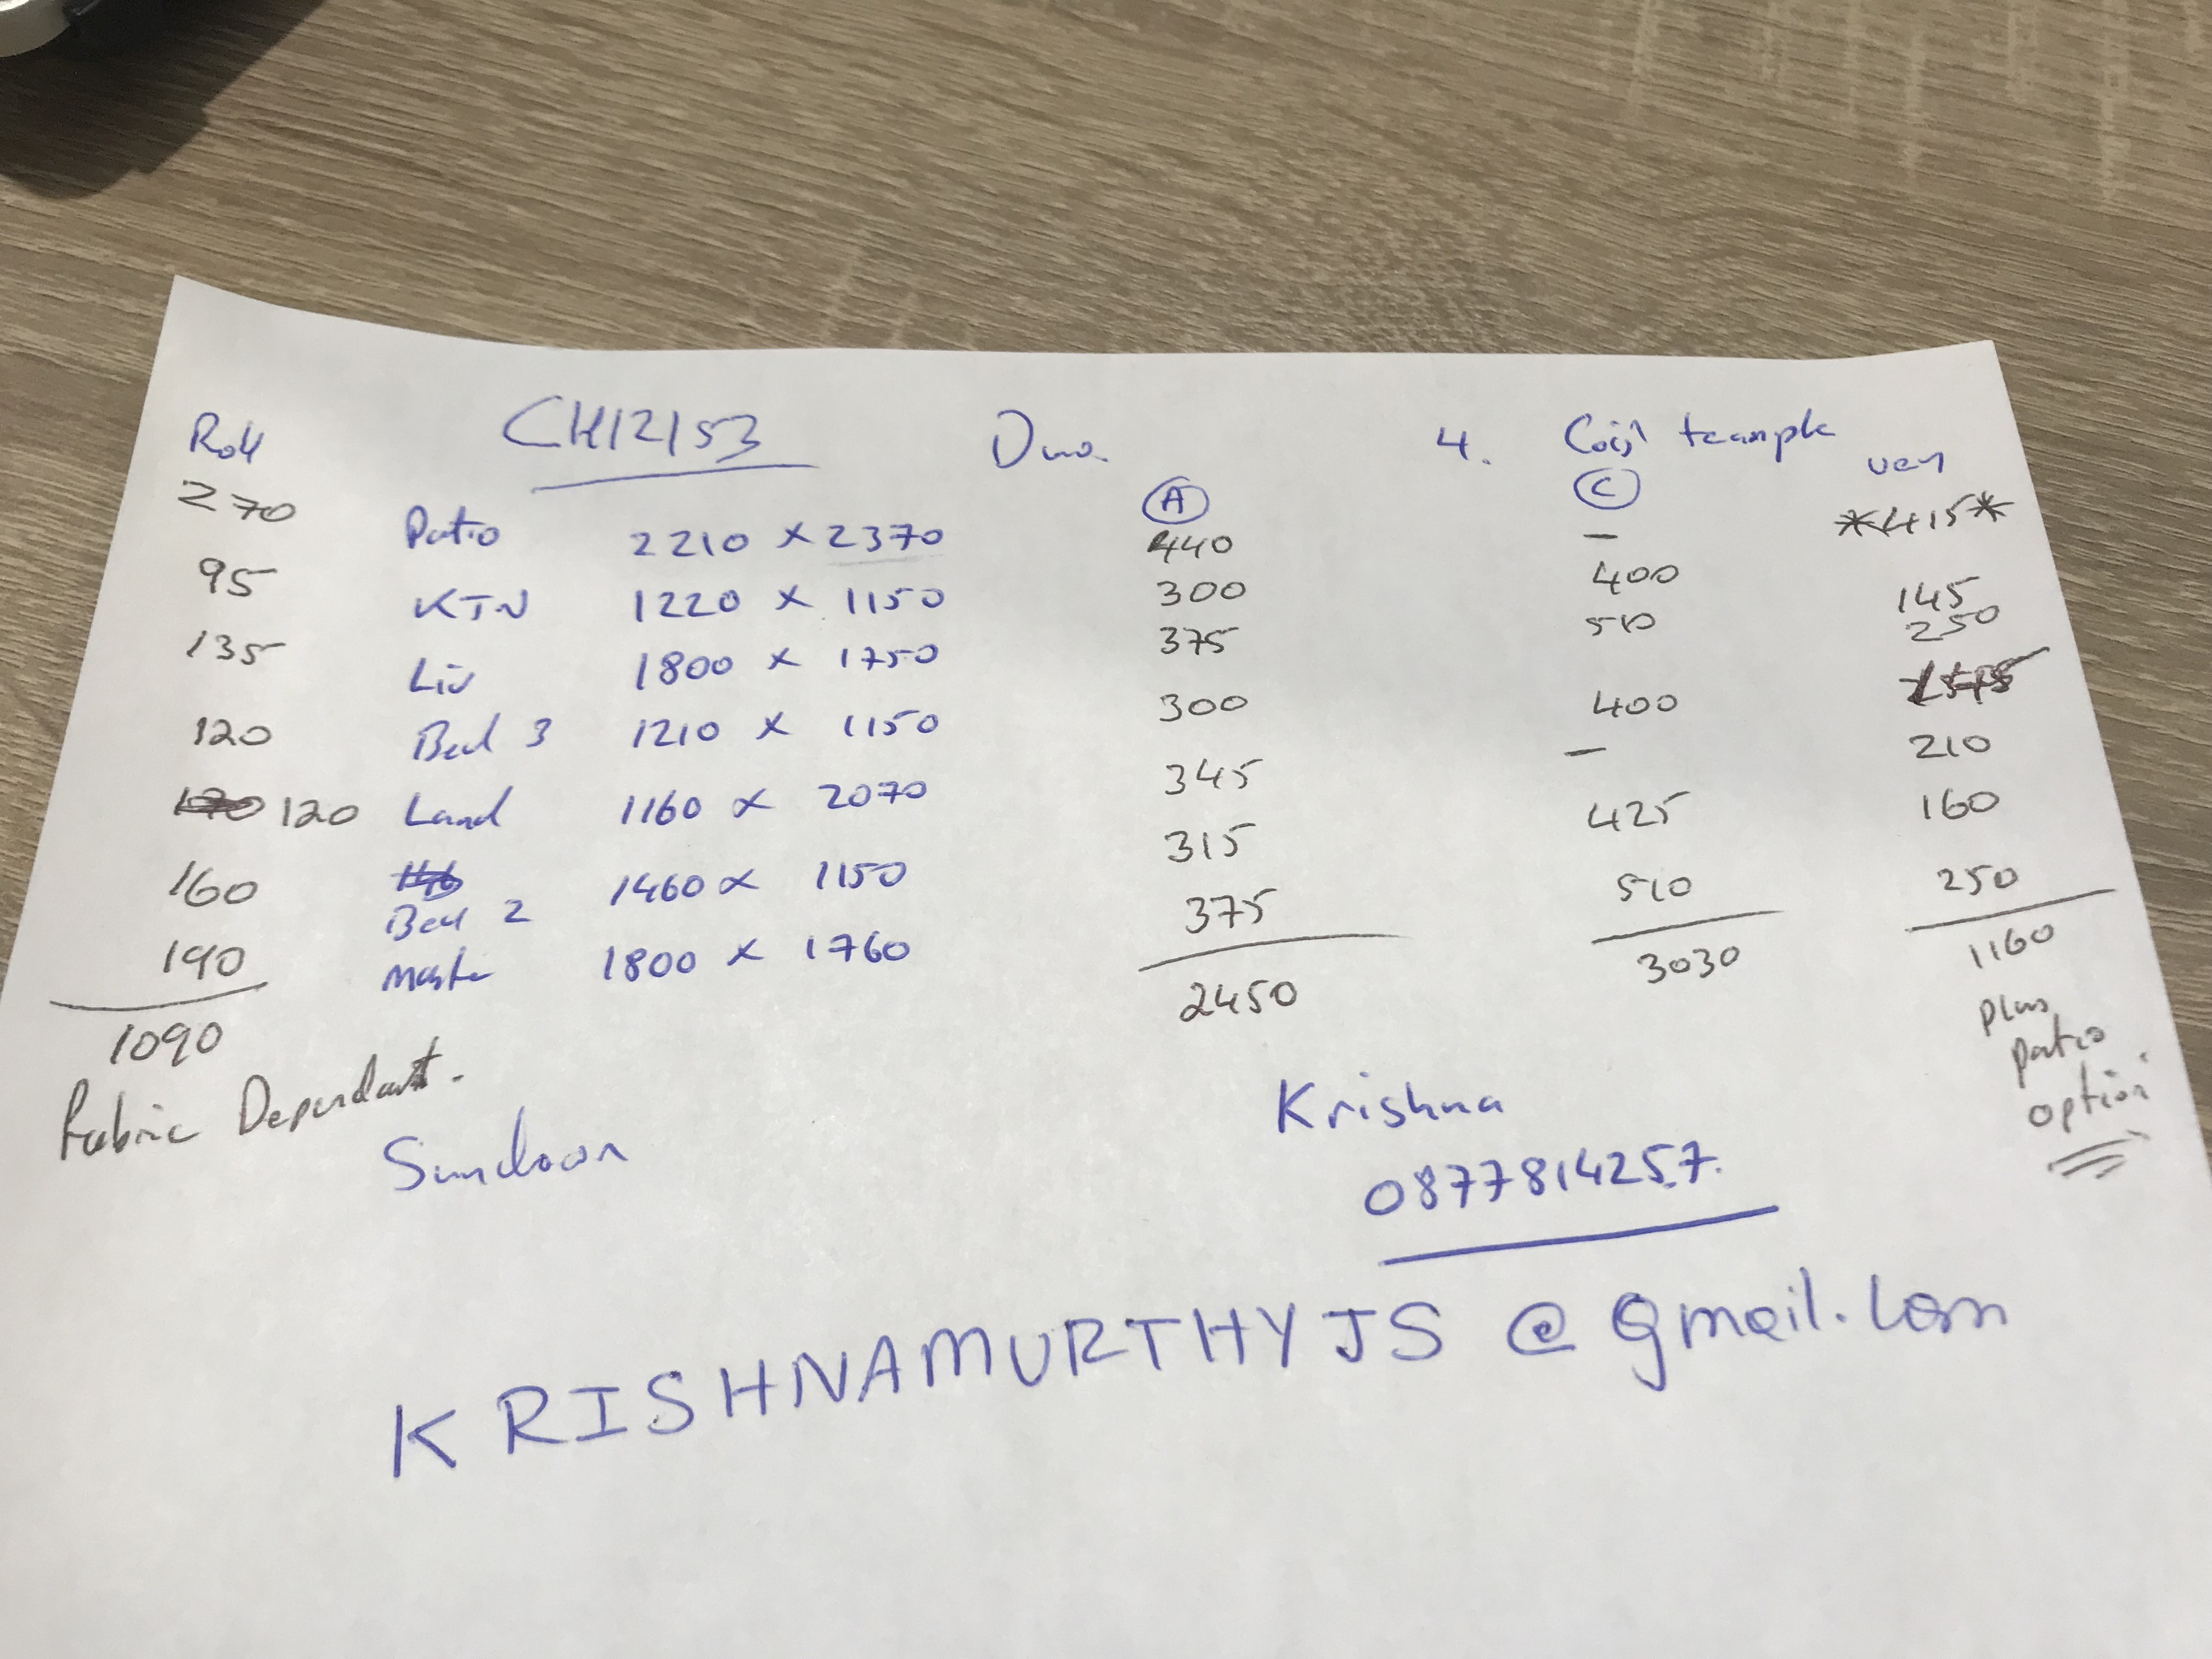 Roll CH12153 Duo. 4. ven
270 Patio 2210 x 2370 Ⓐ 440 Ⓒ — *415*
95 KTN 1220 x 1150 300 400 145
135 Liv 1800 x 1750 375 510 250
120 Bed 3 1210 x 1150 300 400
120 Land 1160 x 2070 345 — 210
160 Bed 2 1460 x 1150 315 425 160
190 Master 1800 x 1760 375 510 250
1090 2450 3030 1160
Fabric Dependant.
plus
patio
option
Krishna
0877814257.
KRISHNAMURTHYJS @ gmail.com